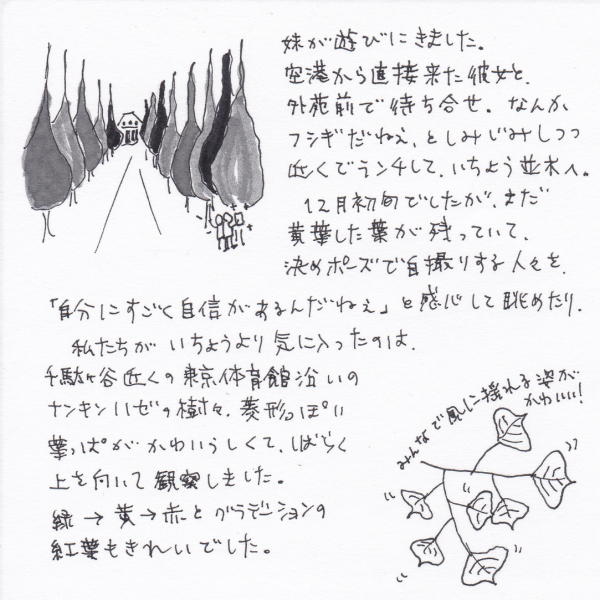 妹が遊びにきました。
空港から直接来た彼女と、
外苑前で待ち合せ。なんか
フシギだねえ、としみじみしつつ
近くでランチして、いちょう並木へ。
12月初旬でしたが、まだ
黄葉した葉が残っていて、
決めポーズで自撮りする人々を、
「自分にすごく自信があるんだねぇ」と感心して眺めたり。
私たちがいちょうより気に入ったのは、
千駄ヶ谷近くの東京体育館沿いの
ナンキンハゼの樹々。菱形っぽい
葉っぱがかわいらしくて、しばらく
上を向いて観察しました。
緑→黄→赤とグラデーションの
紅葉もきれいでした。
みんなで風に揺れる姿が
かわいい!